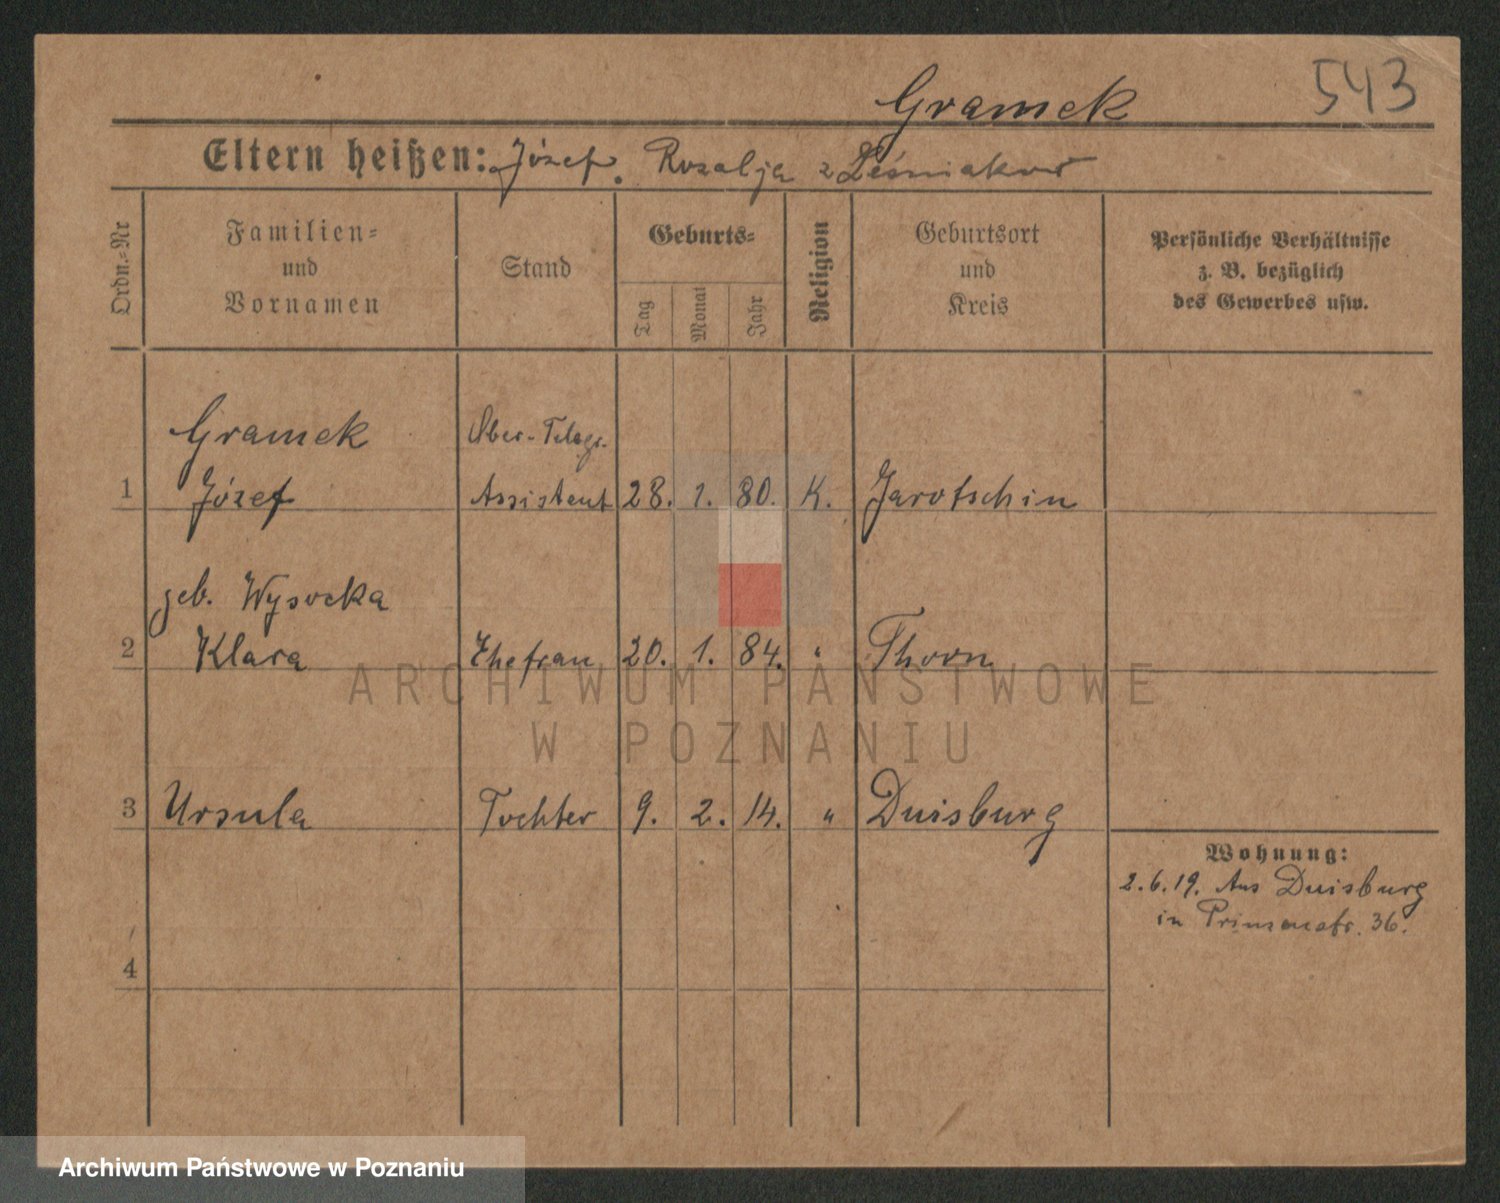 Gramek
543
Eltern heißen: Józef. Rozalja z Leśniaków
Ordn.-Nr
Familien-
und
Vornamen
Stand
Geburts-
Tag
Monat
Jahr
Religion
Geburtsort
und
Kreis
Persönliche Verhältnisse
z. B. bezüglich
des Gewerbes usw.
Gramek Ober-Telegr.
1 Józef Assistent 28. 1. 80. K. Jarotschin
geb. Wysocka
2 Klara Ehefrau 20. 1. 84. " Thorn
ARCHIWUM PAŃSTWOWE
W POZNANIU
3 Ursula Tochter 9. 2. 14. " Duisburg
Wohnung:
2.6.19. Aus Duisburg
in Prinzenstr. 36.
4
Archiwum Państwowe w Poznaniu